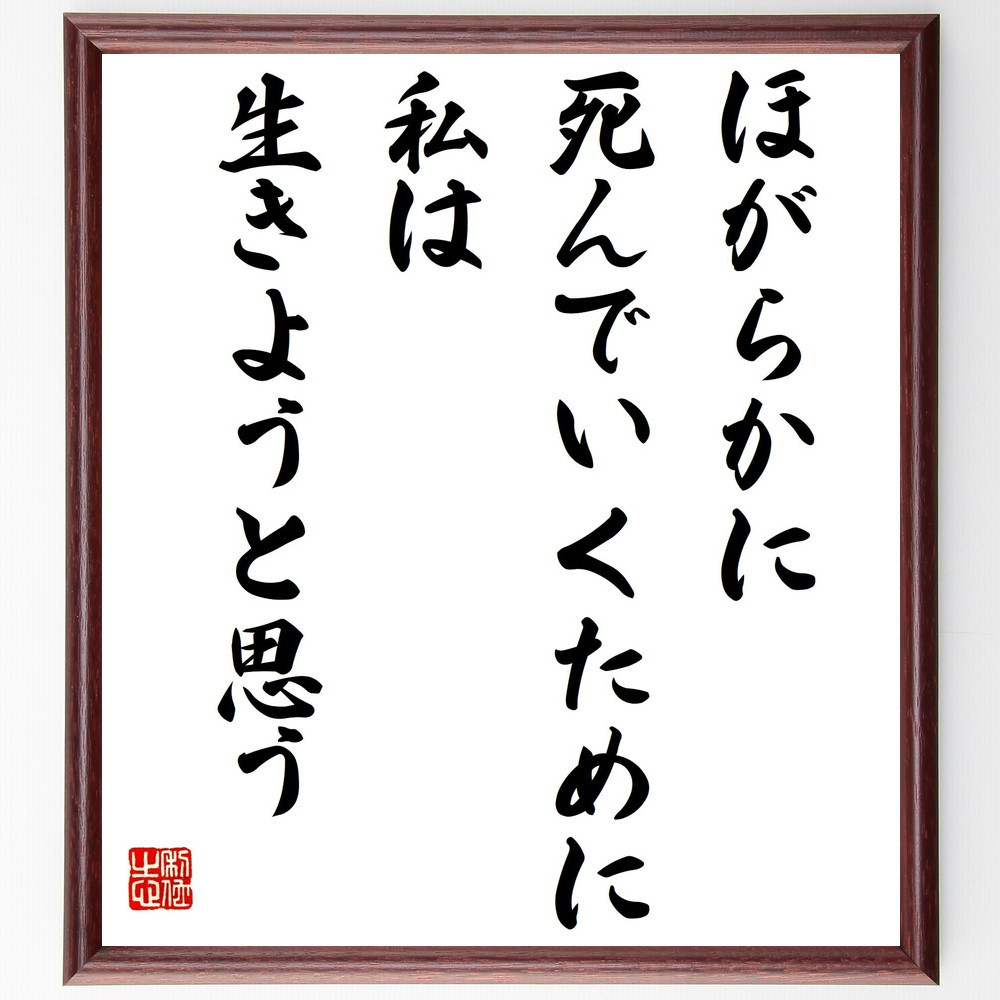 ほがらかに
死んでいくために
私は
生きようと思う